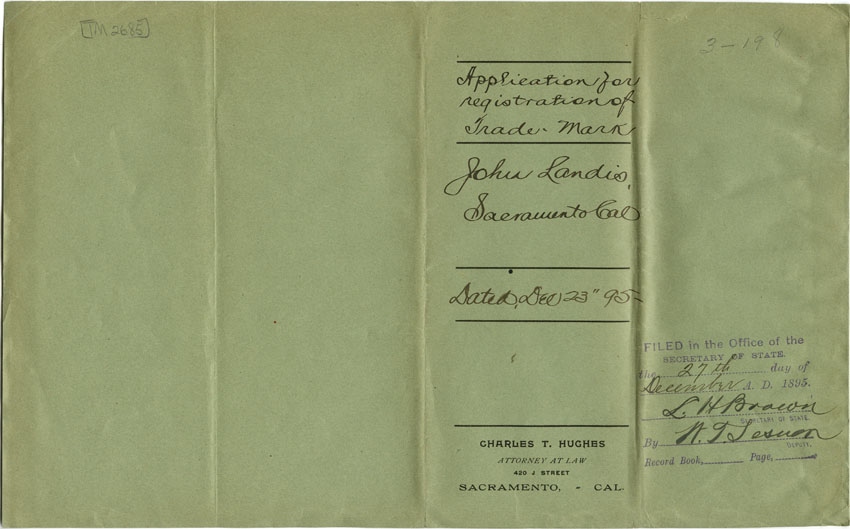 TM 2685
3-198
Application for
registration of
Trade-Mark
John Landis,
Sacramento Cal
Dated, Dec 23" 95-
CHARLES T. HUGHES
ATTORNEY AT LAW
420 J STREET
SACRAMENTO, - CAL.
FILED in the Office of the
SECRETARY OF STATE.
the 27th day of
December A. D. 1895.
L. H. Brown
SECRETARY OF STATE.
By
DEPUTY.
Record Book, Page,